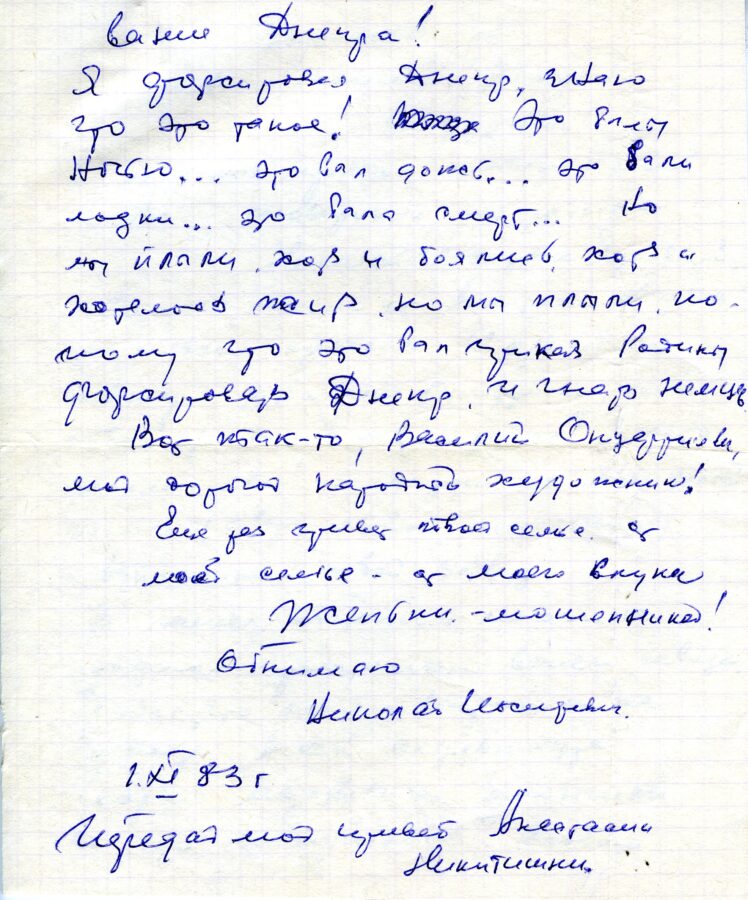 вание Днепра!
Я форсировал Днепр, знаю
что это такое! Это было
ночью... это был ... это были
лодки... это была смерть... Но
мы плыли, хоть и боялись, хоть и
хотелось жить, но мы плыли, по-
тому что это был приказ Родины
форсировать Днепр, и гнать немцев
Вот так-то, Василий Онуфриевич,
мой дорогой народный художник!
Еще раз привет твоей семье от
моей семьи - от моего внука
Женьки - мошенника!
Обнимаю
Николай
1.XI 83 г
Передай мой привет Анастасии
Никитишне.